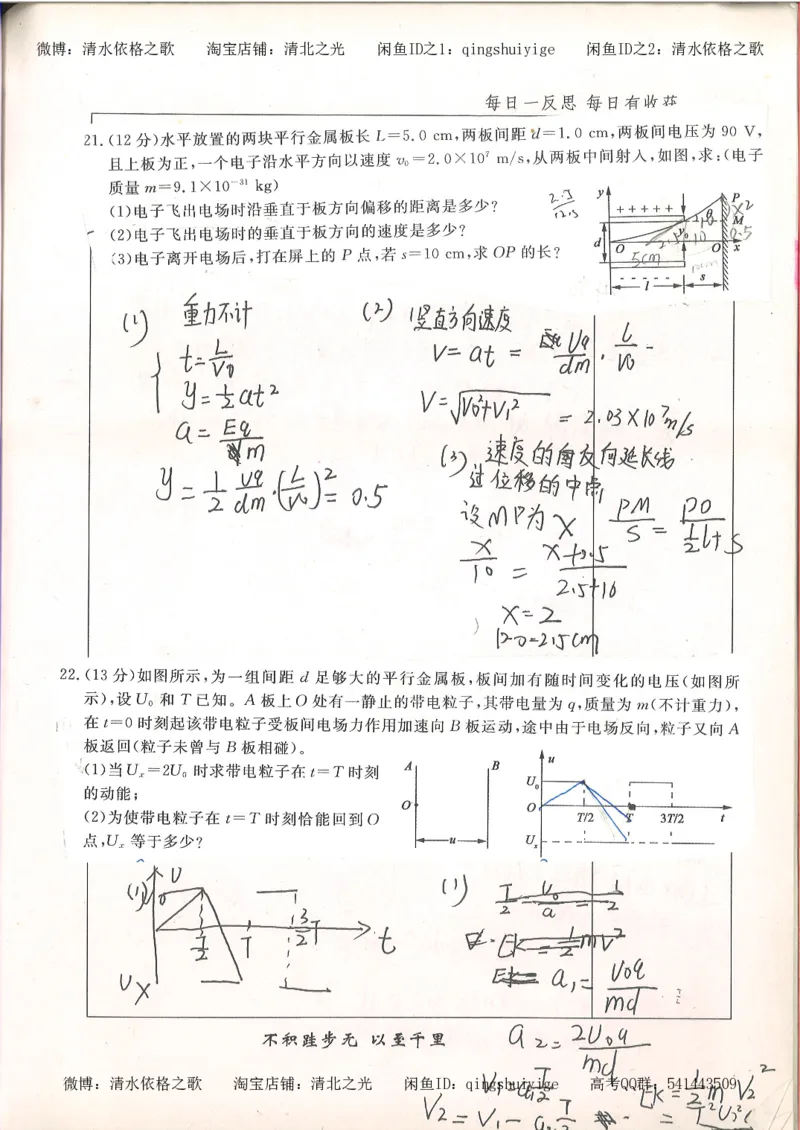 微博：清水依格之歌 淘宝店铺：清北之光 闲鱼ID之1：qingshuiyige 闲鱼ID之2：清水依格之歌
每日一反思 每日有收获
21.(12分)水平放置的两块平行金属板长 L=5.0 cm,两板间距 d=1.0 cm,两板间电压为 90 V,
且上板为正,一个电子沿水平方向以速度 v₀=2.0×10⁷ m/s,从两板中间射入,如图,求:(电子
质量 m=9.1×10⁻³¹ kg)
(1)电子飞出电场时沿垂直于板方向偏移的距离是多少?
(2)电子飞出电场时的垂直于板方向的速度是多少?
(3)电子离开电场后,打在屏上的 P 点,若 s=10 cm,求 OP 的长?
y
+ + + + +
P
M
d
O
y₀
O
x
5cm
- - - - -
l
s
(1) 重力不计
t=L/V₀
y=1/2at²
a=Eq/m
y=1/2 Uq/dm·(L/V₀)²=0.5
(2) 竖直方向速度
V=at= Uq/dm · L/V₀
V=√V₀²+V₁² =2.03×10⁷m/s
(3) 速度的反向延长线
过位移的中点
设MP为X PM/S = PO/½l+S
X/10 = X+0.5/2.5+10
X=2
=2.5cm
22.(13分)如图所示,为一组间距 d 足够大的平行金属板,板间加有随时间变化的电压(如图所
示),设U₀ 和 T 已知。A 板上 O 处有一静止的带电粒子,其带电量为 q,质量为 m(不计重力),
在 t=0 时刻起该带电粒子受板间电场力作用加速向 B 板运动,途中由于电场反向,粒子又向 A
板返回(粒子未曾与 B 板相碰)。
(1)当Uₓ=2U₀ 时求带电粒子在 t=T 时刻
的动能;
(2)为使带电粒子在 t=T 时刻恰能回到O
点,Uₓ 等于多少?
A
B
O
u
u
U₀
O
T/2
T
3T/2
t
Uₓ
(1)
U
T/2
T
3/2T
t
Ux
(1)
a₁= U₀q/md
a₂= 2U₀q/md
V₁=a₁T/2
V₂=V₁-a₂T/2
Ek=1/2mV₂²
不积跬步无 以至千里
微博：清水依格之歌 淘宝店铺：清北之光 闲鱼ID：qingshuiyige 高考QQ群：541443509